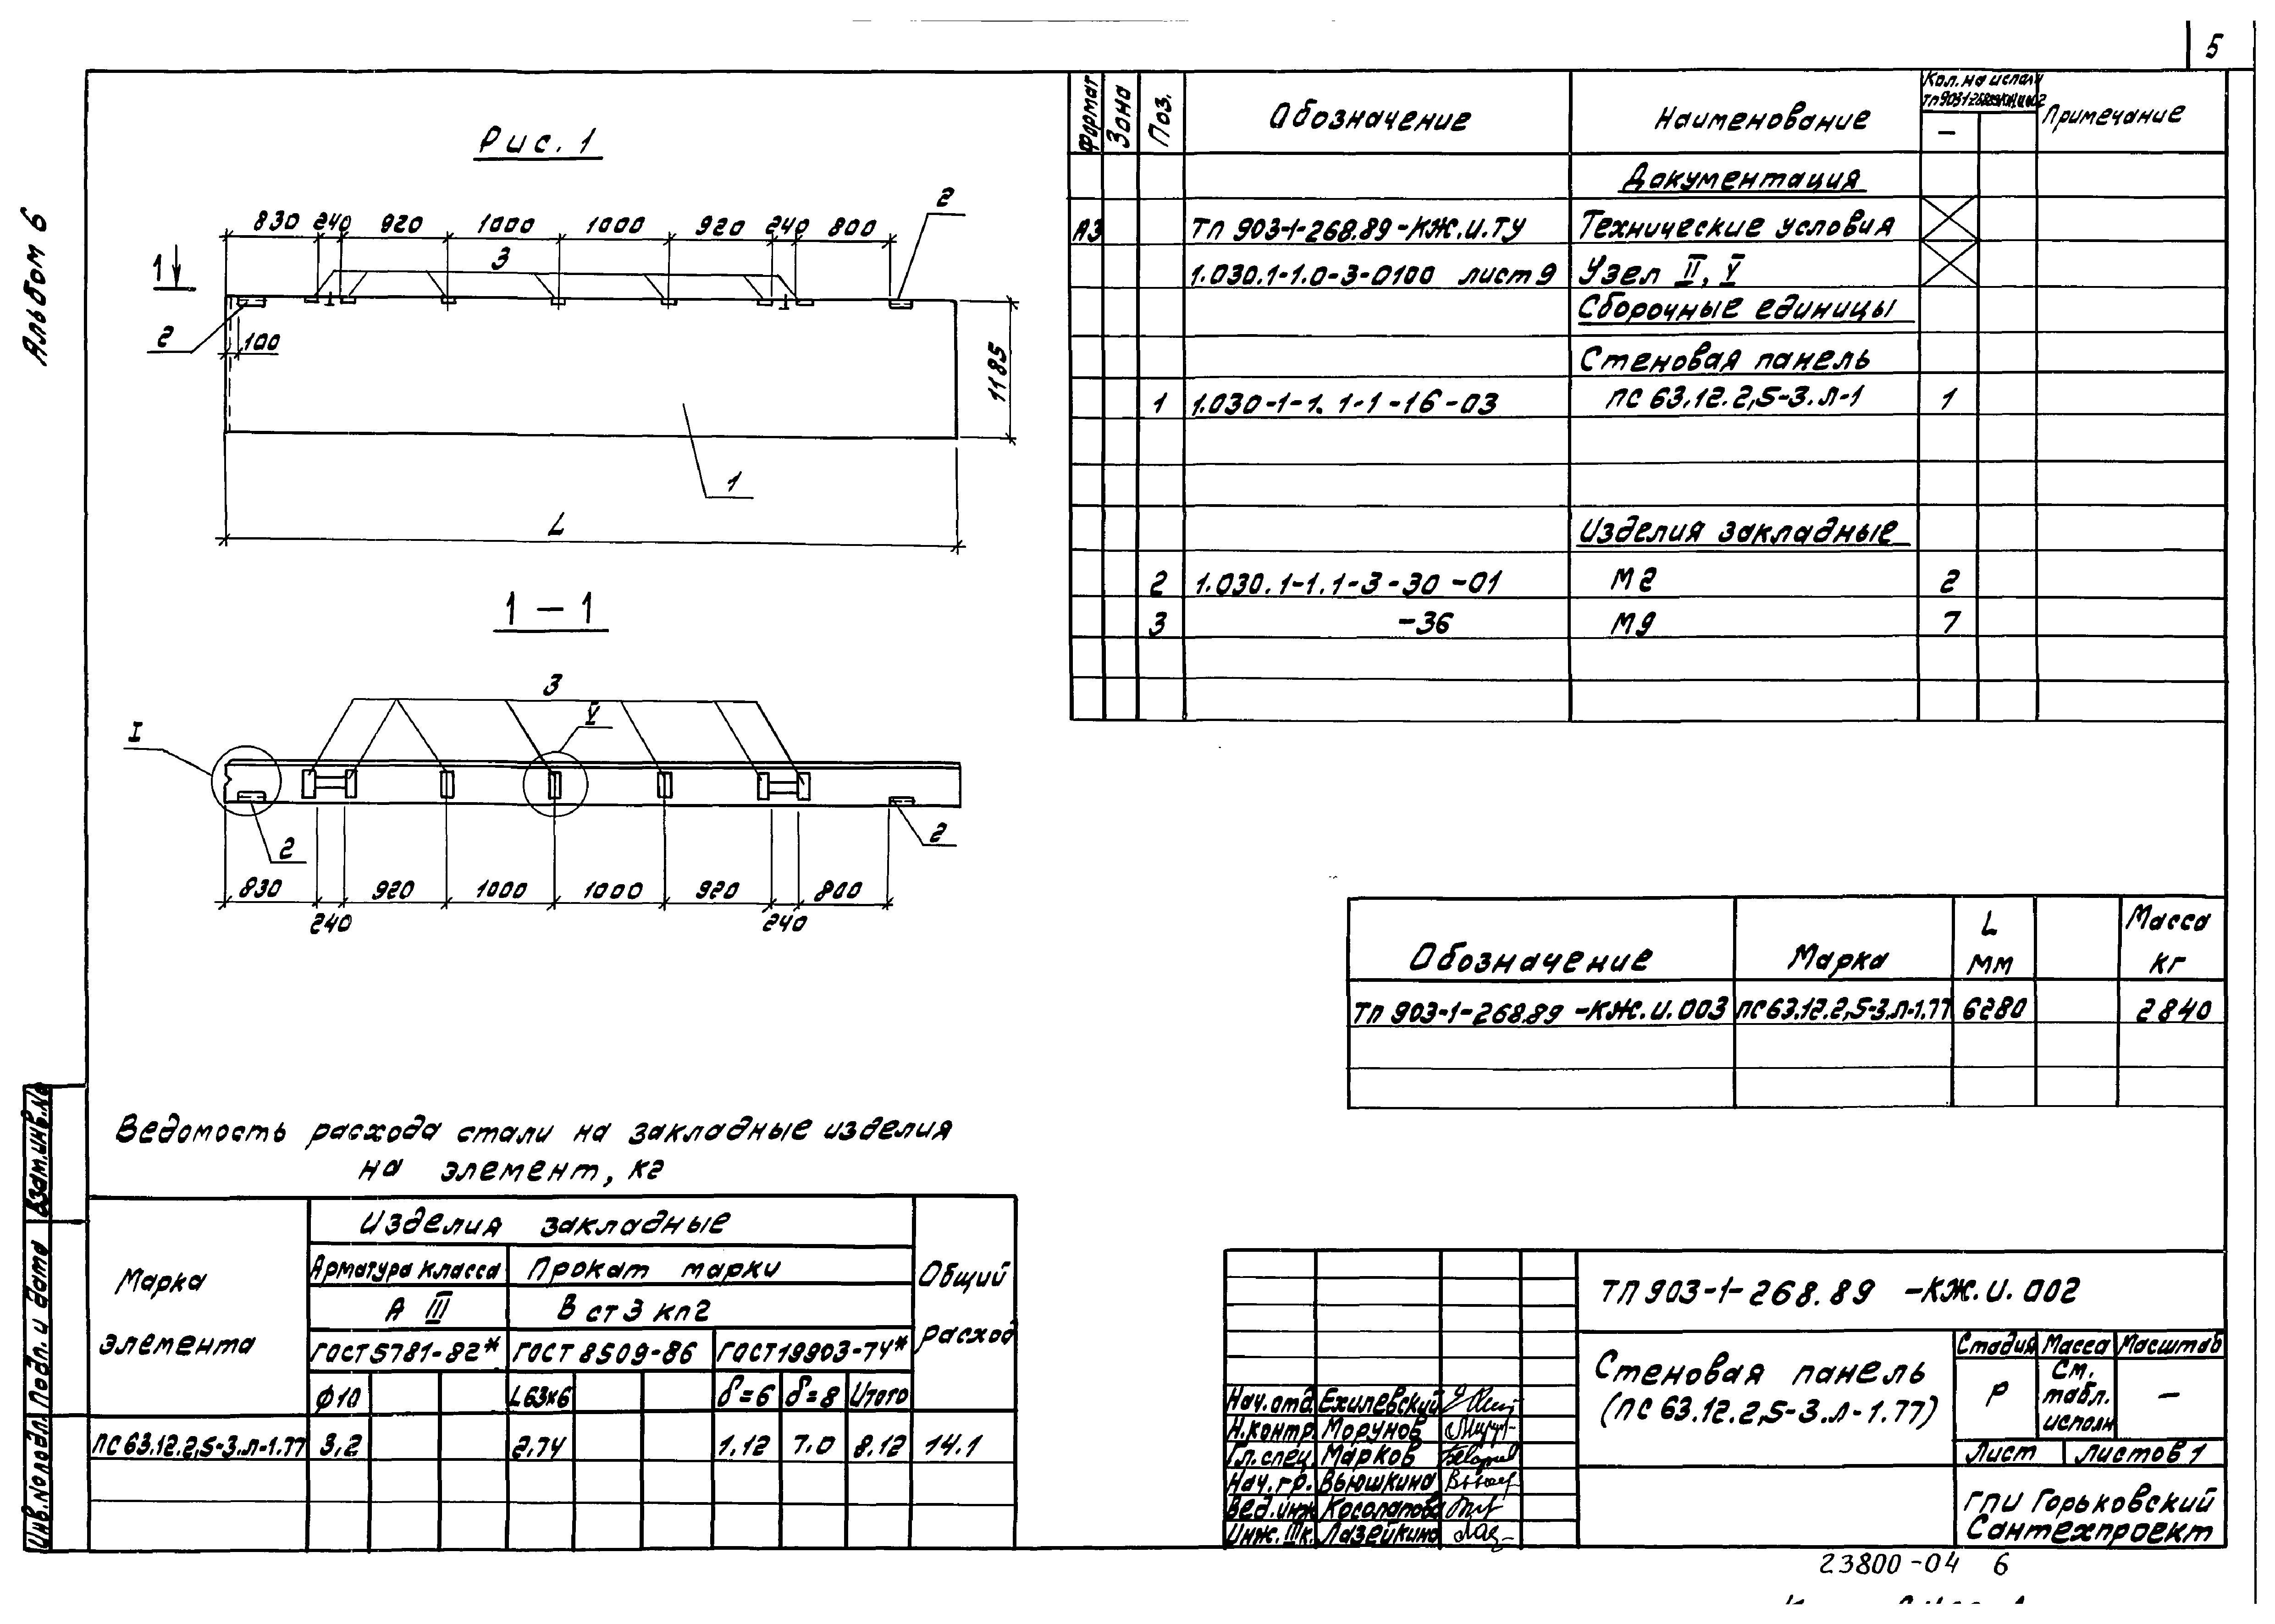 5
Альбом 6
Рис. 1
830 240 920 1000 1000 920 240 800
2
1
3
2
100
1185
1
L
1 – 1
3
V
I
2
2
830 920 1000 1000 920 800
240 240
Формат Зона Поз. Обозначение Наименование Кол. на исполн Примечание
–
Документация
А3 ТП 903-1-268.89-КЖ.И.ТУ Технические условия
1.030.1-1.0-3-0100 лист 9 Узел II, V
Сборочные единицы
Стеновая панель
1 1.030-1-1. 1-1-16-03 ПС 63.12.2,5-3.Л-1 1
Изделия закладные
2 1.030.1-1.1-3-30-01 М2 2
3 -36 М9 7
Обозначение Марка L мм Масса кг
ТП 903-1-268.89 -КЖ.И.003 ПС63.12.2,5-3.Л-1.77 6280 2840
Ведомость расхода стали на закладные изделия
на элемент, кг
Марка элемента
Изделия закладные
Общий расход
Арматура класса Прокат марки
А III В ст 3 кп2
ГОСТ 5781-82* ГОСТ 8509-86 ГОСТ 19903-74*
Ф10 L63х6 δ=6 δ=8 Итого
ПС 63.12.2,5-3.Л-1.77 3,2 2.74 1.12 7.0 8.12 14.1
Взам.инв.№
Подп. и дата
Инв.№подл.
ТП 903-1-268.89 -КЖ.И.002
Стеновая панель
(ПС 63.12.2,5-3.Л-1.77)
Стадия Масса Масштаб
Р См. табл. исполн –
Лист Листов 1
ГПИ Горьковский
Сантехпроект
Нач.отд. Ехилевский
Н.контр. Морунов
Гл.спец. Марков
Нач.гр. Вьюшкина
Вед.инж Косолапова
Инж. IIIк. Лазейкина
23800-04 6